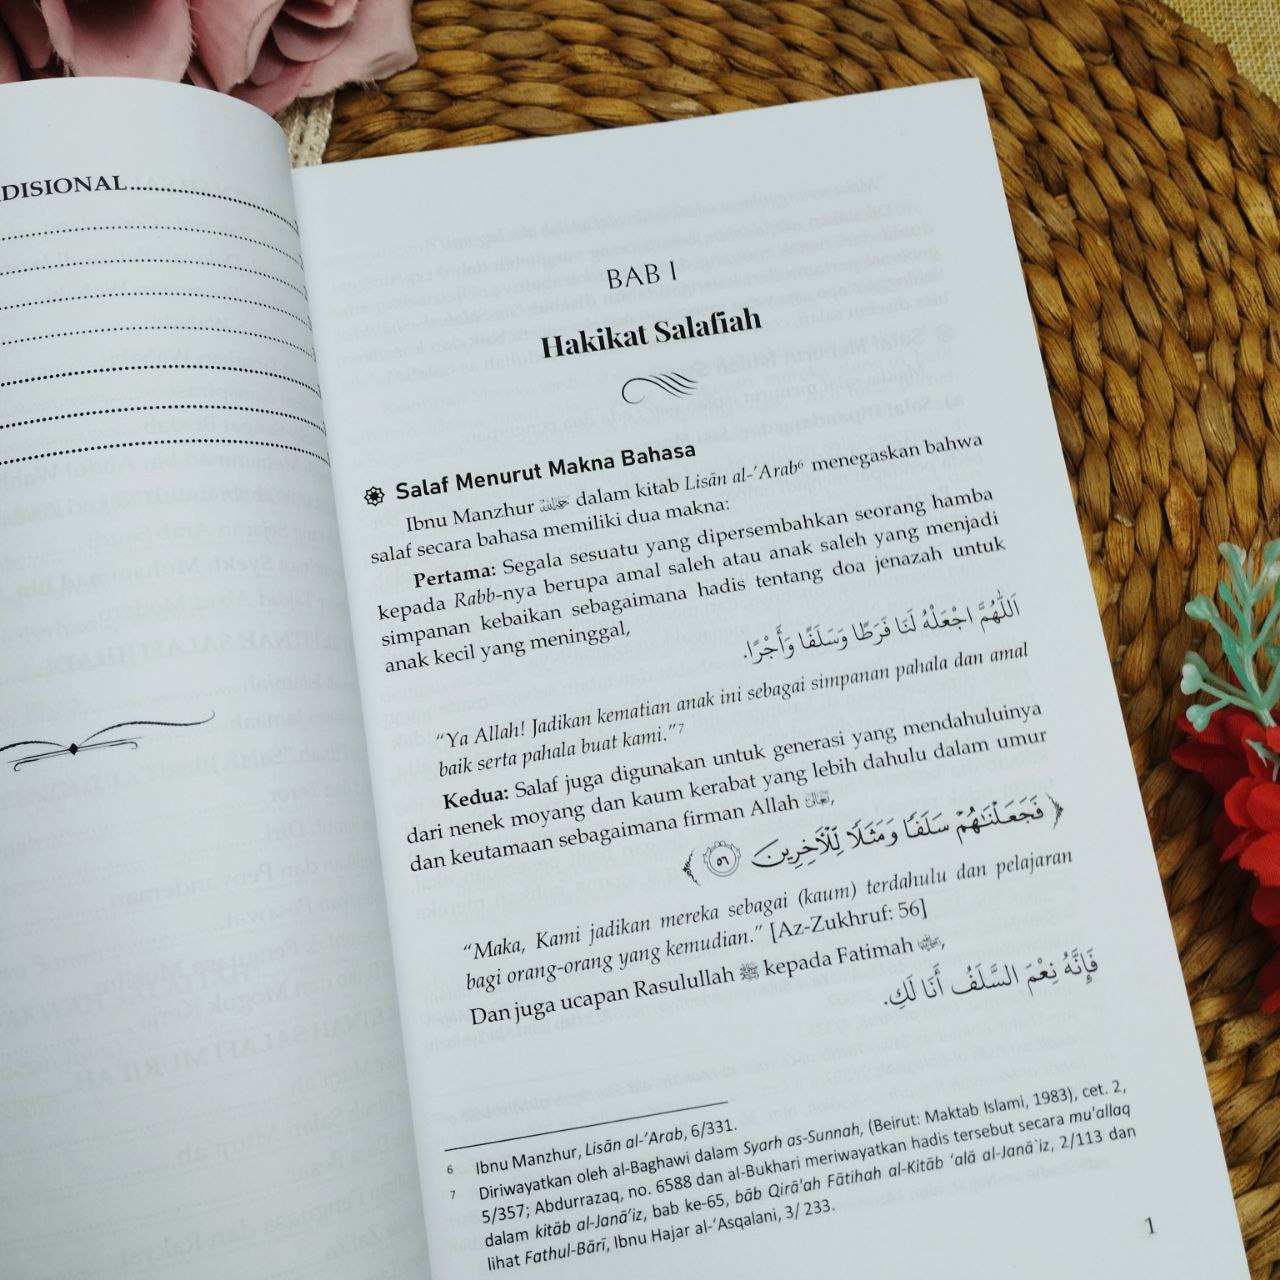 DISIONAL
BAB I
Hakikat Salafiah
Salaf Menurut Makna Bahasa
Ibnu Manzhur dalam kitab Lisān al-'Arab⁶ menegaskan bahwa
salaf secara bahasa memiliki dua makna:
Pertama: Segala sesuatu yang dipersembahkan seorang hamba
kepada Rabb-nya berupa amal saleh atau anak saleh yang menjadi
simpanan kebaikan sebagaimana hadis tentang doa jenazah untuk
anak kecil yang meninggal,
اَللّٰهُمَّ اجْعَلْهُ لَنَا فَرَطًا وَسَلَفًا وَأَجْرًا.
“Ya Allah! Jadikan kematian anak ini sebagai simpanan pahala dan amal
baik serta pahala buat kami.”⁷
Kedua: Salaf juga digunakan untuk generasi yang mendahuluinya
dari nenek moyang dan kaum kerabat yang lebih dahulu dalam umur
dan keutamaan sebagaimana firman Allah ,
﴿ فَجَعَلْنَـٰهُمْ سَلَفًا وَمَثَلًا لِّلْـَٔاخِرِينَ ٥٦ ﴾
“Maka, Kami jadikan mereka sebagai (kaum) terdahulu dan pelajaran
bagi orang-orang yang kemudian.” [Az-Zukhruf: 56]
Dan juga ucapan Rasulullah ﷺ kepada Fatimah ,
فَإِنَّهُ نِعْمَ السَّلَفُ أَنَا لَكِ.
6 Ibnu Manzhur, Lisān al-'Arab, 6/331.
7 Diriwayatkan oleh al-Baghawi dalam Syarh as-Sunnah, (Beirut: Maktab Islami, 1983), cet. 2,
5/357; Abdurrazaq, no. 6588 dan al-Bukhari meriwayatkan hadis tersebut secara mu'allaq
dalam kitāb al-Janā'iz, bab ke-65, bāb Qirā'ah Fātihah al-Kitāb 'alā al-Janā`iz, 2/113 dan
lihat Fathul-Bārī, Ibnu Hajar al-'Asqalani, 3/ 233.
1